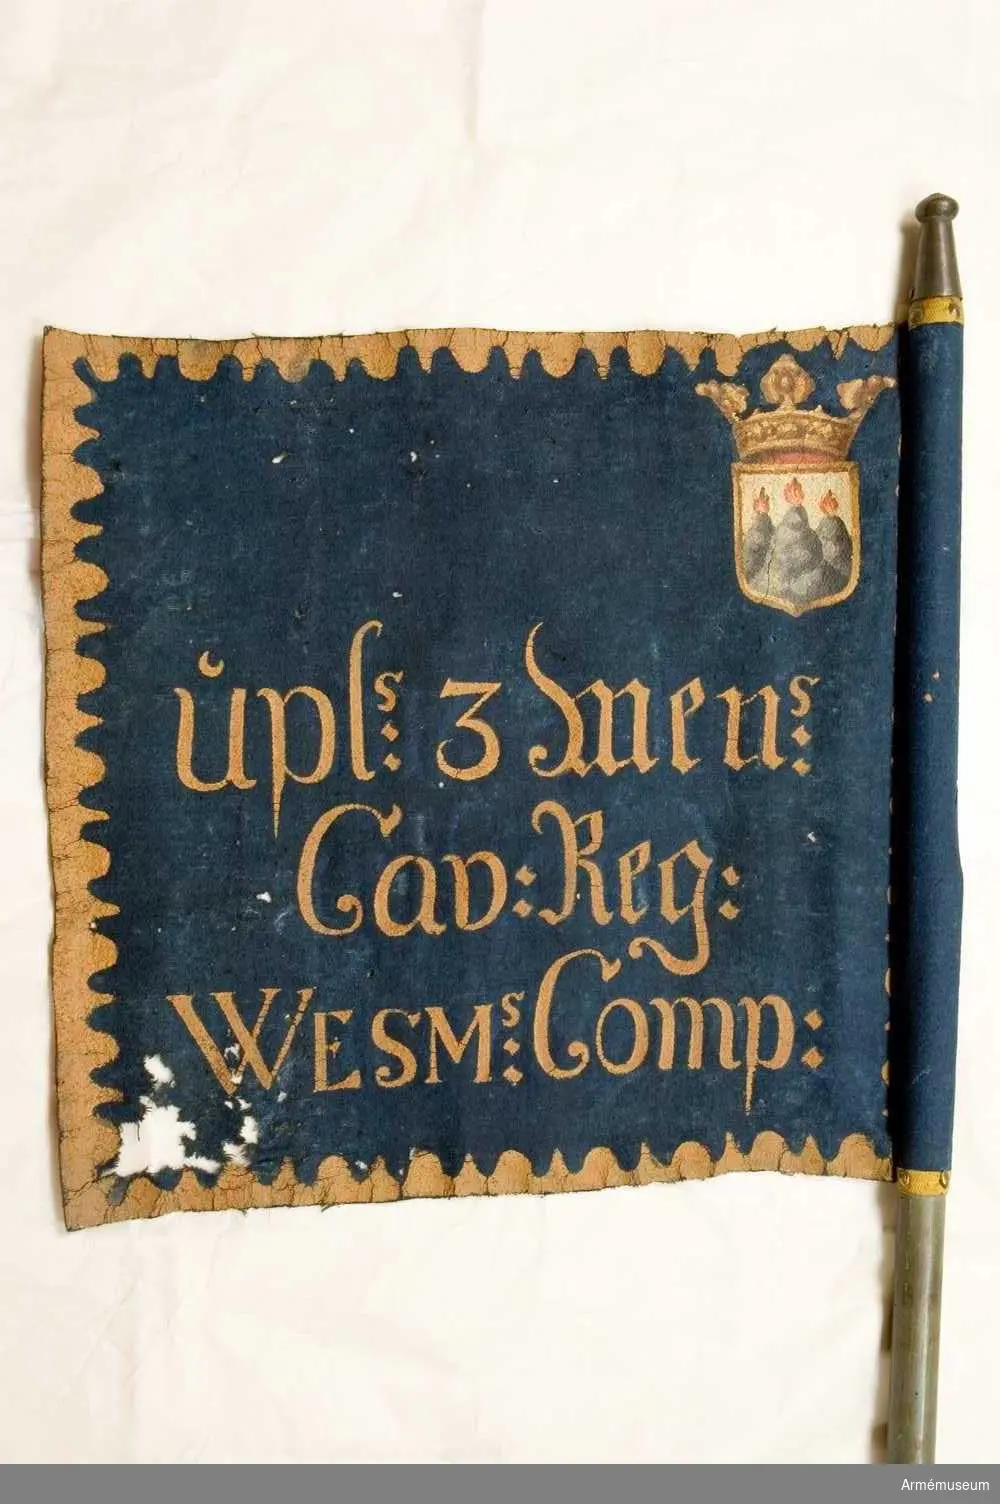 upls: 3 Mens:
Cav: Reg:
WESMs: Comp:
Armémuseum